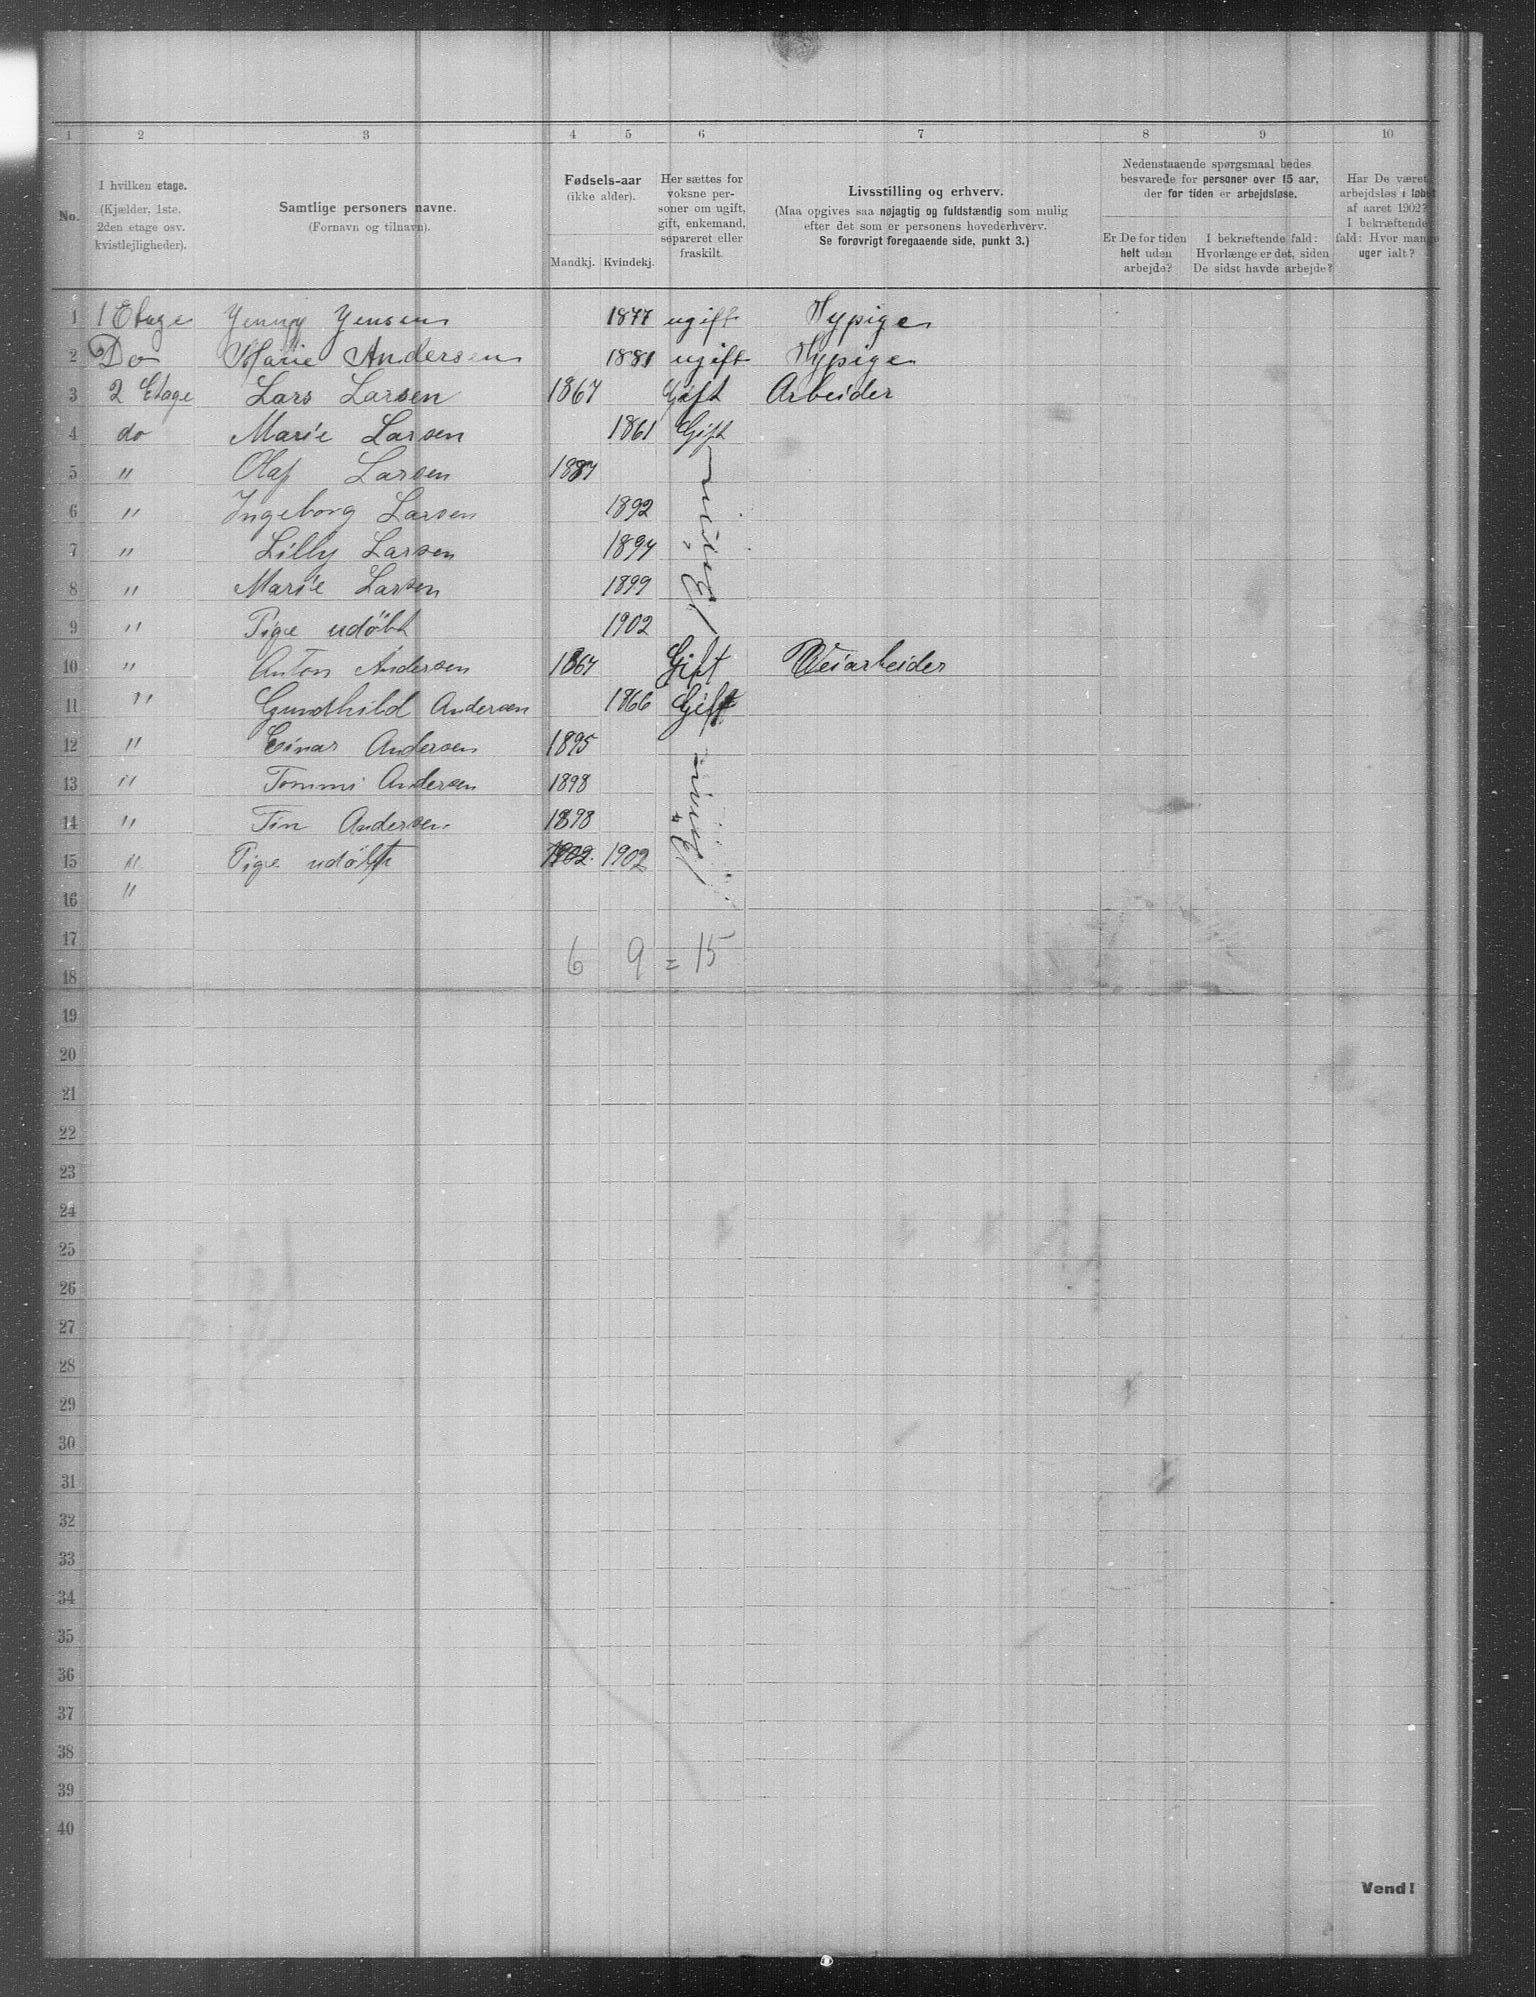 1 2 3 4 5 6 7 8 9 10
No.
I hvilken etage.
(Kjælder, 1ste.
2den etage osv.
kvistlejligheder).
Samtlige personers navne.
(Fornavn og tilnavn).
Fødsels-aar
(ikke alder).
Mandkj. Kvindekj.
Her sættes for
voksne per-
soner om ugift,
gift, enkemand,
separeret eller
fraskilt.
Livsstilling og erhverv.
(Maa opgives saa nøjagtig og fuldstændig som mulig
efter det som er personens hovederhverv.
Se forøvrigt foregaaende side, punkt 3.)
Nedenstaaende spørgsmaal bedes
besvarede for personer over 15 aar,
der for tiden er arbejdsløse.
Er De for tiden
helt uden
arbejde?
I bekræftende fald:
Hvorlænge er det, siden
De sidst havde arbejde?
Har De været
arbejdsløs i løbet
af aaret 1902?
I bekræftende
fald: Hvor mange
uger ialt?
1 1 Etage Jenny Jensen 1877 ugift Sypige
2 Do Marie Andersen 1881 ugift Sypige
3 2 Etage Lars Larsen 1867 Gift Arbeider
4 do Marie Larsen 1861 Gift
5 " Olaf Larsen 1887
6 " Ingeborg Larsen 1892
7 " Lilly Larsen 1894
8 " Marie Larsen 1899
9 " Pige udöbt 1902
10 " Anton Andersen 1867 Gift Veiarbeider
11 " Gundhild Andersen 1866 Gift
12 " Einar Andersen 1895
13 " Tommi Andersen 1898
14 " Tin Andersen 1898
15 " Pige udöbt 1902. 1902
16 "
17
6 9 = 15
18
19
20
21
22
23
24
25
26
27
28
29
30
31
32
33
34
35
36
37
38
39
40
Vend!